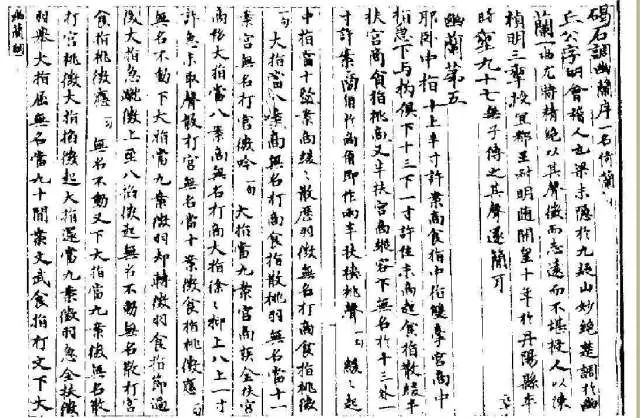 碣石調幽蘭序一名倚蘭
丘公字明會稽人也梁末隱於九疑山妙絕楚調於幽
蘭一曲尤特精絕以其聲微而志遠而不堪授人以陳
禎明三年授宜都王叔明隨開皇十年於丹陽縣卒
時年九十七無子傳之其聲遂簡耳
幽蘭第五
耶臥中指十上半寸許案商食指中指雙牽宮商中
指急下与拘俱下十三下一寸許住末商起食指散緩半
扶宮商食指挑商又半扶宮商縱容下無名於十三外一
寸許案商角於商角即作兩半扶挾挑聲一句 緩緩起
中指當十案商緩緩散歷羽徵無名打商食指挑徵
一句 大指當八案商無名打商食指散挑羽 當十一
案宮無名打宮徵吟一句 大指當九案宮商 全扶宮
商移大指當八案商無名打商大指徐徐抑上八上一寸
許急末取聲散打宮無名當十案徵食指挑徵應一句
無名不動下大指當九案徵羽却轉徵羽食指節過
徵大指急蹴徵上至八 徵起無名不動無名散打宮
食指挑徵應一句 無名不動又下大指當九案徵無名散
打宮挑徵大指 徵起大指還當九案徵羽急全扶徵
羽舉大指屈無名當九十間案文武食指打文下大
幽蘭